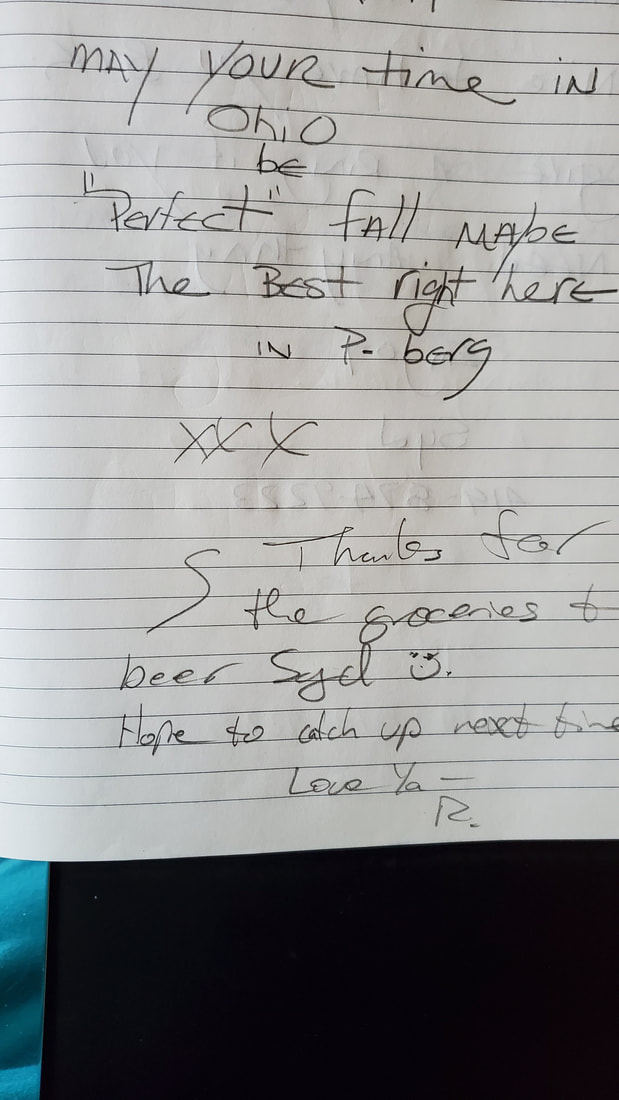 MAY YOUR time IN
OhiO
be
"Perfect" fAll MAybE
The Best right here
IN P- berg
XXX
Thanks for
the groceries +
beer Syd
Hope to catch up next time
Love Ya —
R.